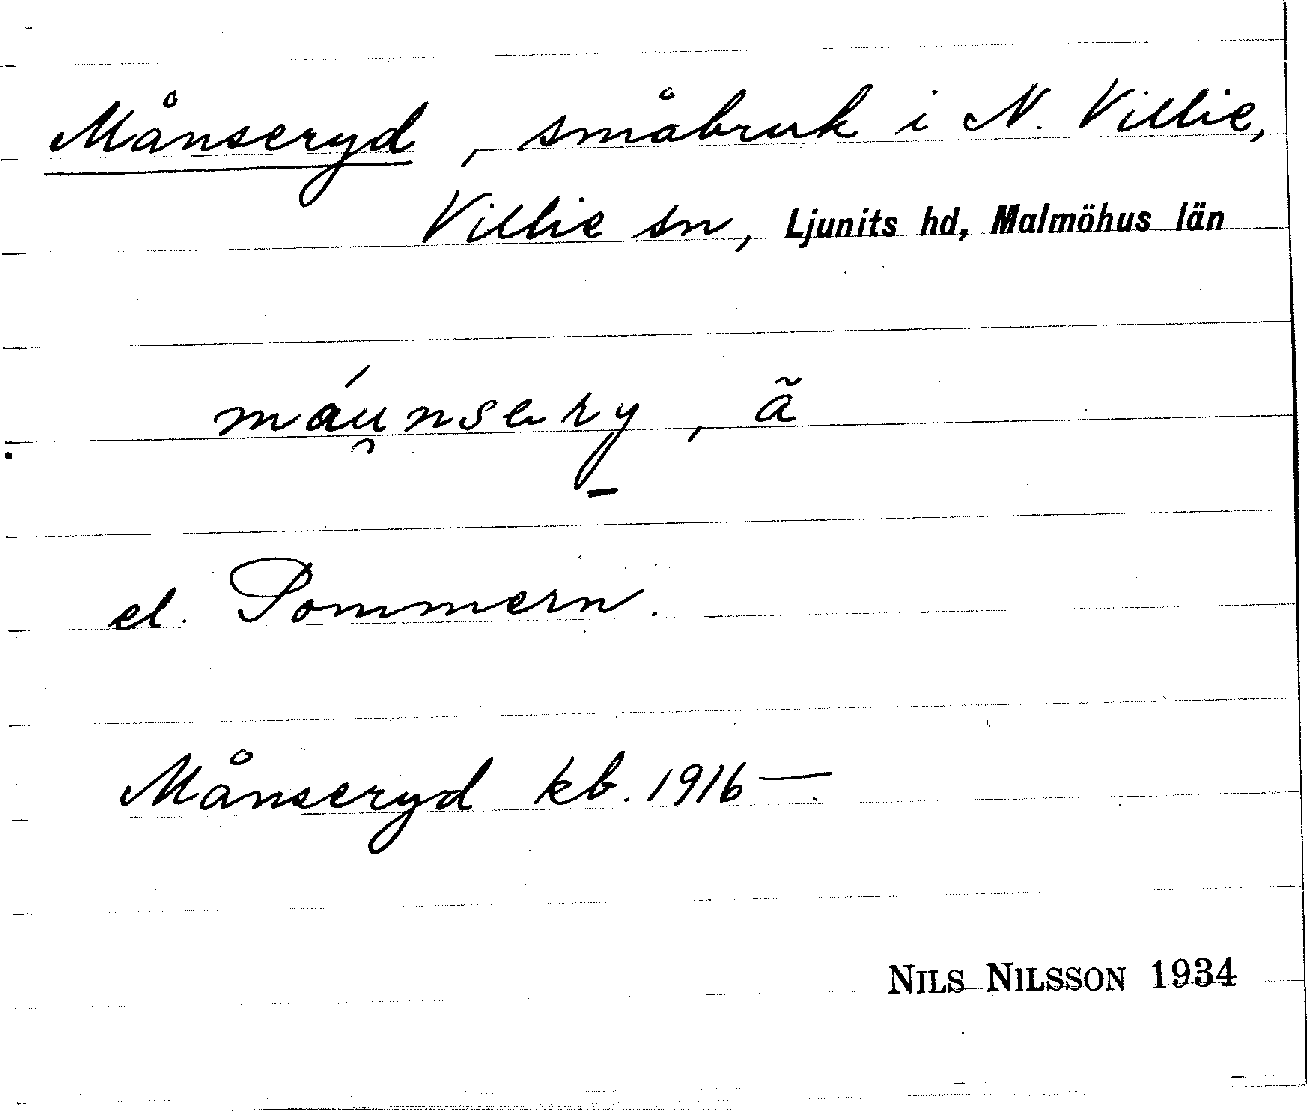 Månseryd, småbruk i N. Villie,
Villie sn, Ljunits hd, Malmöhus län
máu̯nsery, ã
el. Pommern.
Månseryd kb. 1916 —.
NILS NILSSON 1934